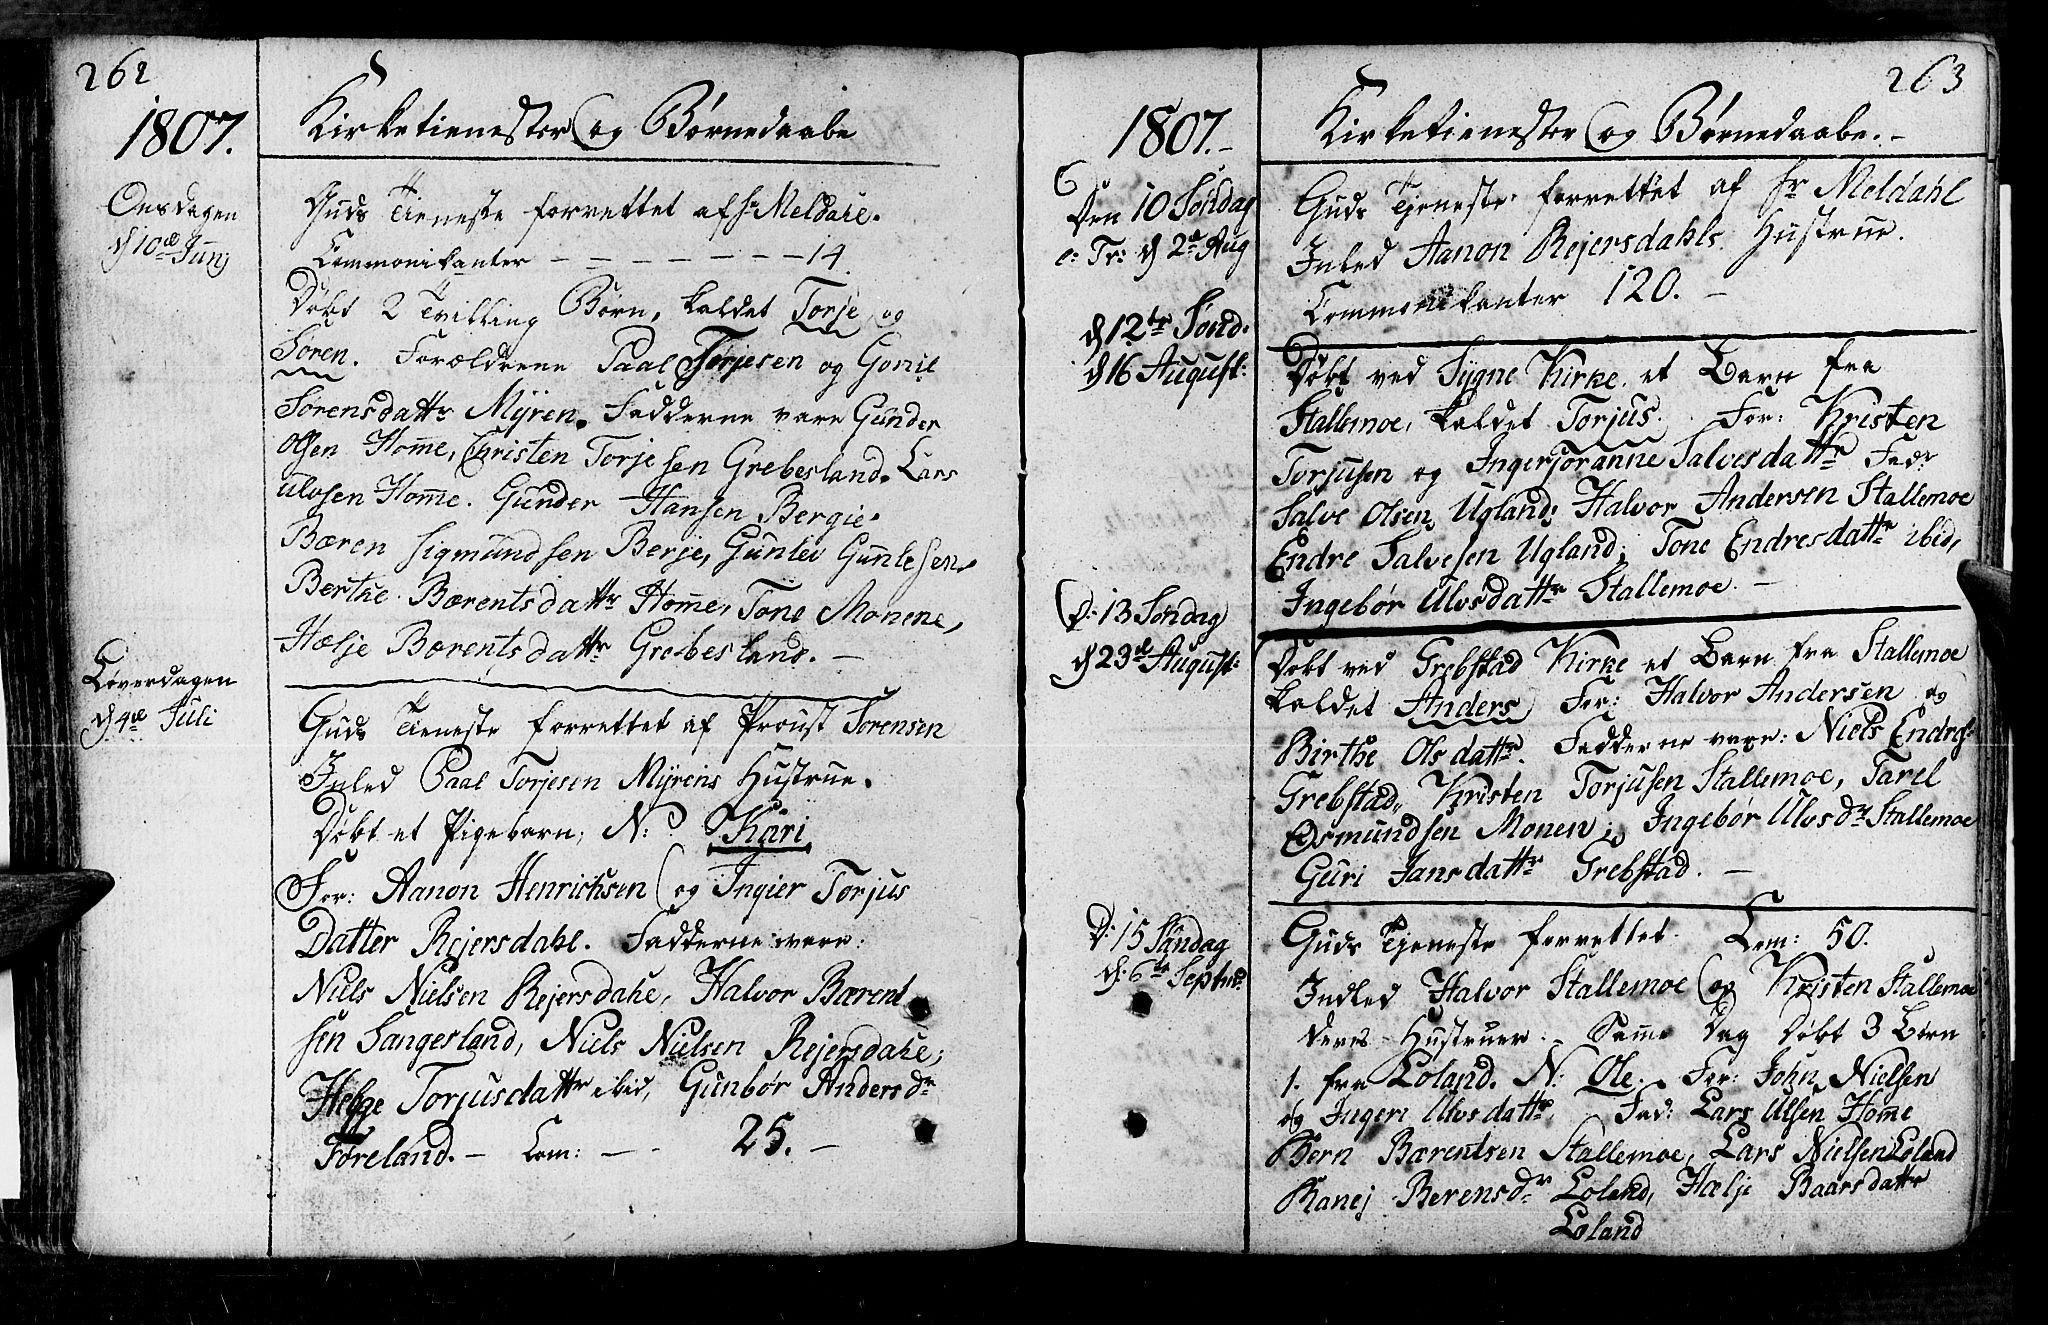 262
1807.
Kirketienester og Børnedaabe
Onsdagen
d 10de Junj
Guds Tieneste forrettet af hr Meldahl.
Commonikanter - - - - - - - 14.
Døbt 2 Tvilling Børn, kaldet Torje og
Søren. Forældrene Paal Torjesen og Gonil
Sørensdattr Mÿren. Fadderne vare Gunder
Olsen Home, Christen Torjesen Grebesland. Lars
Ulvsen Home. Gunder Hansen Bergie.
Bæren Sigmundsen Berje, Gunlev Gunlesen.
Berthe Bærentsdattr Home, Tone Monene,
Hælje Bærentsdattr Grebesland. -
Løverdagen
d 4de Juli
Guds Tieneste forrettet af Proust Sørensen
Inled Paal Torjesen Mÿrens Hustrue.
Døbt et Pigebarn, N: Kari
For: Aanon Henrichsen og Ingier Torjus
Datter Rejersdahl. Fadderne vare:
Niels Nielsen Rejersdahl, Halvor Bærent
sen Sangesland, Niels Nielsen Rejersdahl,
Helge Torjusdattr ibid, Gunbør Andersdr
Føreland. - Com: - - 25. -
263
1807. -
Kirketienester og Børnedaabe. -
Den 10 Søndag
e: Tr: d 2de Aug
Guds Tjeneste forrettet af Hr Meldahl
Inled Aanon Rejersdahls Hustrue.
Commonikanter 120. -
d 12te Sønd:
d 16 August:
Døbt ved Sygne Kirke et Barn fra
Stallemoe, kaldet Torjus. For: Kristen
Torjusen og Ingerjoranne Salvesdattr Fadr
Salve Olsen Ugland, Halvor Andersen Stallemoe
Endre Salvesen Ugland, Tone Endresdattr ibid,
Ingebør Ulvsdattr Stallemoe. -
D: 13 Søndag
d 23de August:
Døbt ved Grebstad Kirke et Barn fra Stallemoe
kaldet Anders For: Halvor Andersen og
Birthe Olsdattr. Fadderne vare: Niels Endres:
Grebstad, Kristen Torjusen Stallemoe, Tarel
Osmundsen Monen, Ingebør Ulvsdr Stallemoe
Guri Jansdattr Grebstad. -
D: 15 Søndag
d: 6te Septbr.
Guds Tjeneste forrettet. Com: 50.
Indled Halvor Stallemoe og Kristen Stallemoe
deres Hustruer. - Same Dag Døbt 3 Børn
1. fra Loland. N: Ole. For: John Nielsen
og Ingeri Ulvsdattr. Fad: Lars Ulsen Home
Bern Bærentsen Stallemoe, Lars Nielsen Loland
Ranej Berensdr Loland, Hælje Baarsdattr
Loland